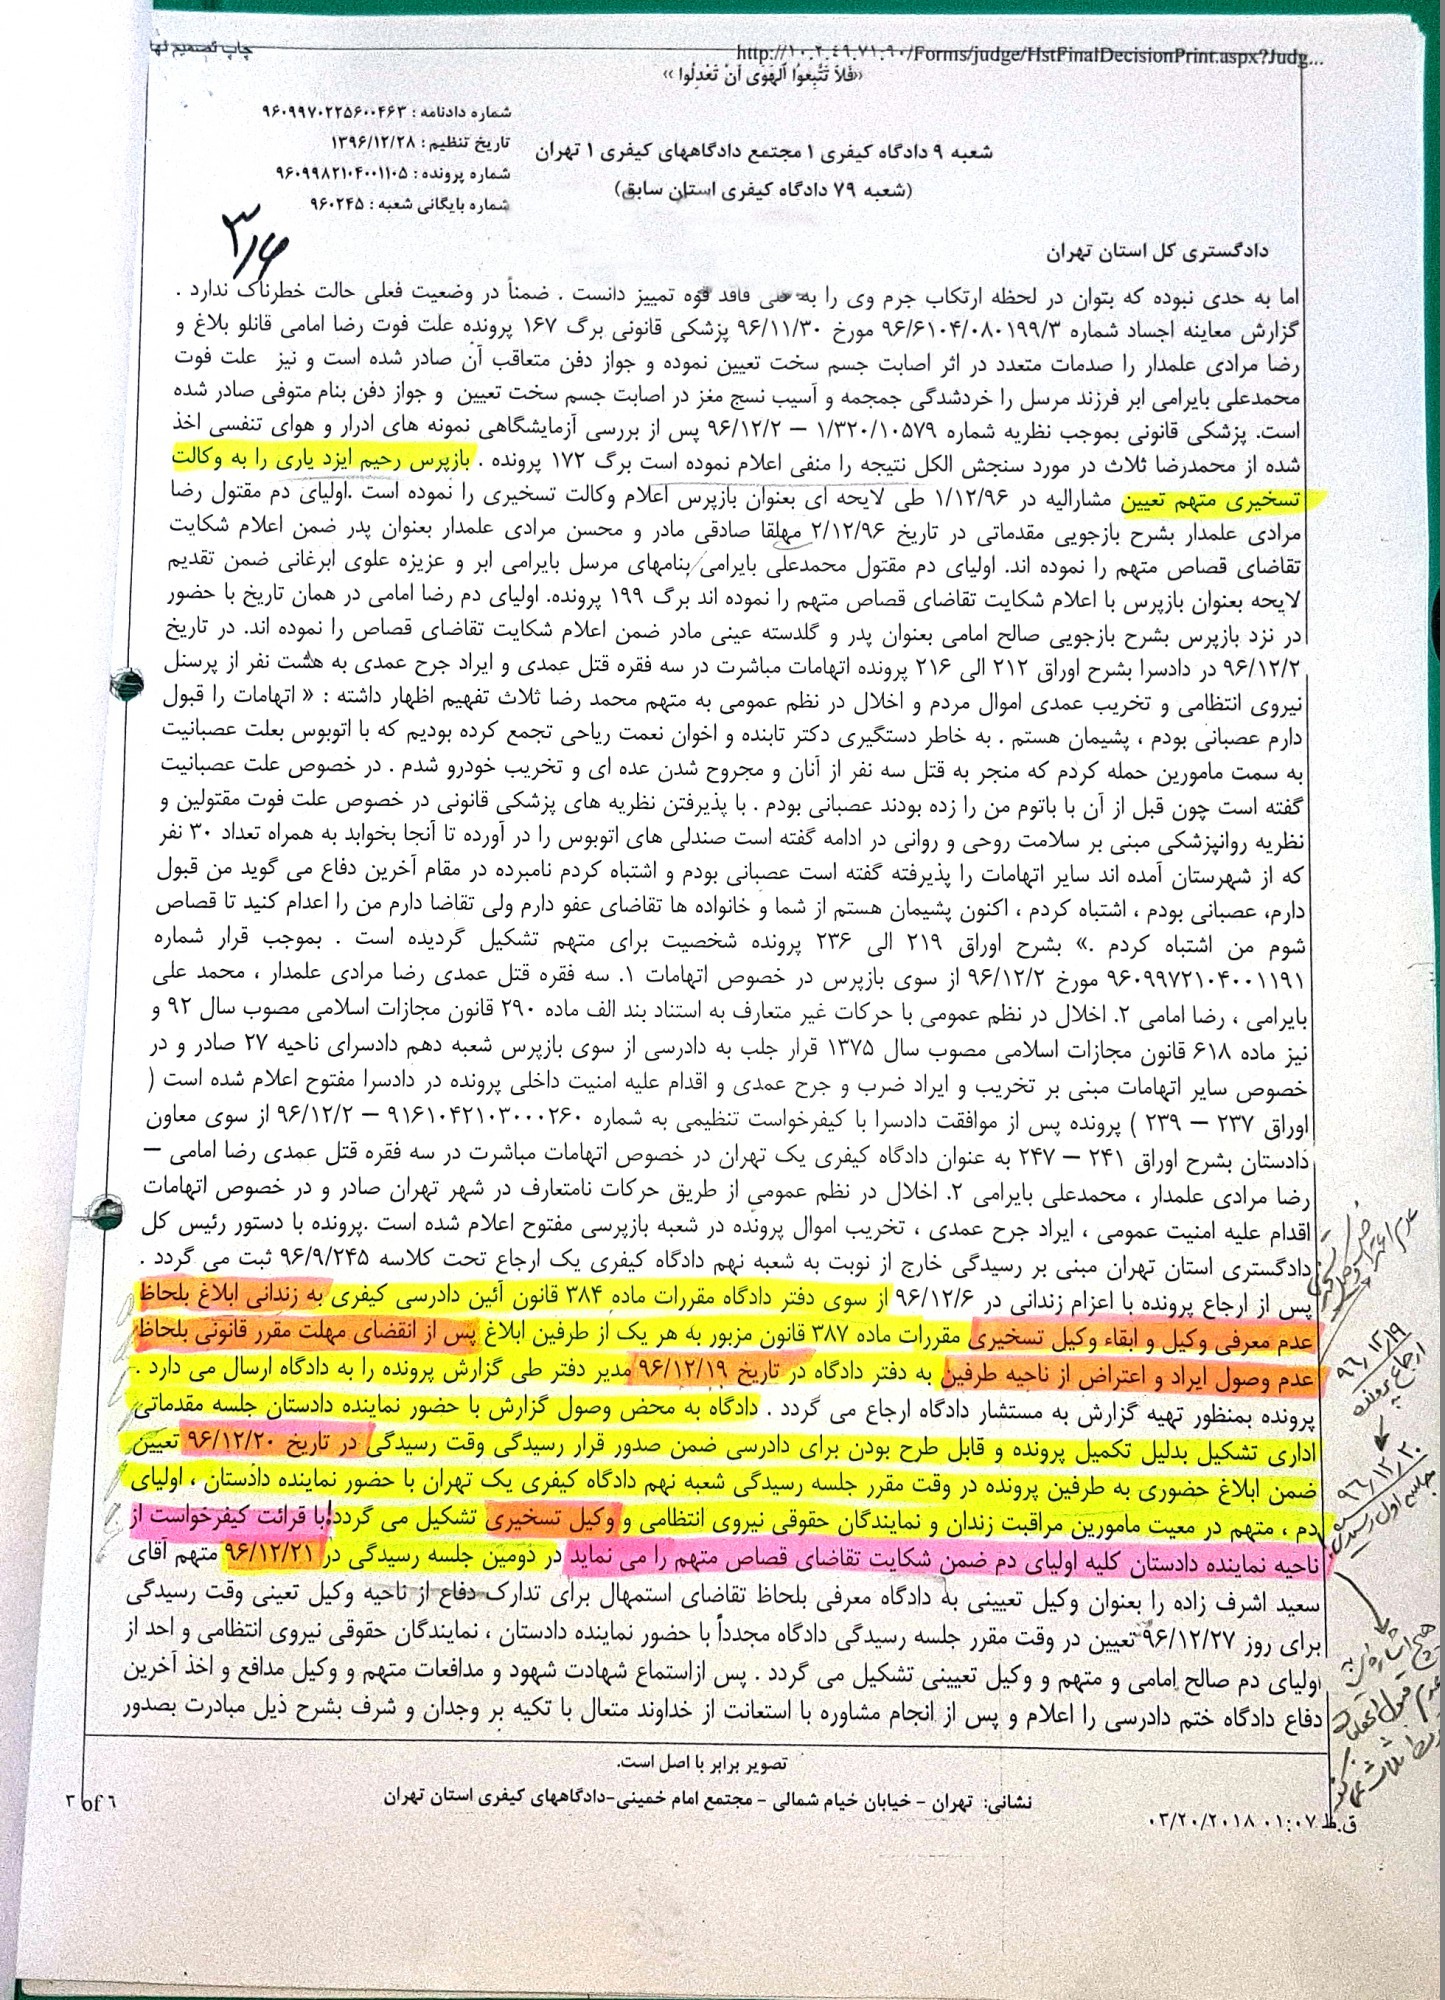 چاپ تصمیم نها
http://۱۰.۲.۴۹.۷۱.۹۰/Forms/judge/HstFinalDecisionPrint.aspx?Judg...
««فَلاَ تَتَّبِعوُا اَلهَوَی اَنْ تَعْدِلُوا »»
شماره دادنامه : ۹۶۰۹۹۷۰۲۲۵۶۰۰۴۶۳
تاریخ تنظیم : ۱۳۹۶/۱۲/۲۸
شماره پرونده : ۹۶۰۹۹۸۲۱۰۴۰۰۱۱۰۵
شماره بایگانی شعبه : ۹۶۰۲۴۵
شعبه ۹ دادگاه کیفری ۱ مجتمع دادگاههای کیفری ۱ تهران
(شعبه ۷۹ دادگاه کیفری استان سابق)
۳/۶
دادگستری کل استان تهران
اما به حدی نبوده که بتوان در لحظه ارتکاب جرم وی را به کلی فاقد قوه تمییز دانست . ضمناً در وضعیت فعلی حالت خطرناک ندارد .
گزارش معاینه اجساد شماره ۹۶/۶۱۰۴/۰۸۰۱۹۹/۳ مورخ ۹۶/۱۱/۳۰ پزشکی قانونی برگ ۱۶۷ پرونده علت فوت رضا امامی قانلو بلاغ و
رضا مرادی علمدار را صدمات متعدد در اثر اصابت جسم سخت تعیین نموده و جواز دفن متعاقب آن صادر شده است و نیز علت فوت
محمدعلی بایرامی ابر فرزند مرسل را خردشدگی جمجمه و آسیب نسج مغز در اصابت جسم سخت تعیین و جواز دفن بنام متوفی صادر شده
است. پزشکی قانونی بموجب نظریه شماره ۱/۳۲۰/۱۰۵۷۹ – ۹۶/۱۲/۲ پس از بررسی آزمایشگاهی نمونه های ادرار و هوای تنفسی اخذ
شده از محمدرضا ثلاث در مورد سنجش الکل نتیجه را منفی اعلام نموده است برگ ۱۷۲ پرونده . بازپرس رحیم ایزد یاری را به وکالت
تسخیری متهم تعیین مشارالیه در ۱/۱۲/۹۶ طی لایحه ای بعنوان بازپرس اعلام وکالت تسخیری را نموده است .اولیای دم مقتول رضا
مرادی علمدار بشرح بازجویی مقدماتی در تاریخ ۲/۱۲/۹۶ مهلقا صادقی مادر و محسن مرادی علمدار بعنوان پدر ضمن اعلام شکایت
تقاضای قصاص متهم را نموده اند. اولیای دم مقتول محمدعلی بایرامی بنامهای مرسل بایرامی ابر و عزیزه علوی ابرغانی ضمن تقدیم
لایحه بعنوان بازپرس با اعلام شکایت تقاضای قصاص متهم را نموده اند برگ ۱۹۹ پرونده. اولیای دم رضا امامی در همان تاریخ با حضور
در نزد بازپرس بشرح بازجویی صالح امامی بعنوان پدر و گلدسته عینی مادر ضمن اعلام شکایت تقاضای قصاص را نموده اند. در تاریخ
۹۶/۱۲/۲ در دادسرا بشرح اوراق ۲۱۲ الی ۲۱۶ پرونده اتهامات مباشرت در سه فقره قتل عمدی و ایراد جرح عمدی به هشت نفر از پرسنل
نیروی انتظامی و تخریب عمدی اموال مردم و اخلال در نظم عمومی به متهم محمد رضا ثلاث تفهیم اظهار داشته : « اتهامات را قبول
دارم عصبانی بودم ، پشیمان هستم . به خاطر دستگیری دکتر تابنده و اخوان نعمت ریاحی تجمع کرده بودیم که با اتوبوس بعلت عصبانیت
به سمت مامورین حمله کردم که منجر به قتل سه نفر از آنان و مجروح شدن عده ای و تخریب خودرو شدم . در خصوص علت عصبانیت
گفته است چون قبل از آن با باتوم من را زده بودند عصبانی بودم . با پذیرفتن نظریه های پزشکی قانونی در خصوص علت فوت مقتولین و
نظریه روانپزشکی مبنی بر سلامت روحی و روانی در ادامه گفته است صندلی های اتوبوس را در آورده تا آنجا بخوابد به همراه تعداد ۳۰ نفر
که از شهرستان آمده اند سایر اتهامات را پذیرفته گفته است عصبانی بودم و اشتباه کردم نامبرده در مقام آخرین دفاع می گوید من قبول
دارم، عصبانی بودم ، اشتباه کردم ، اکنون پشیمان هستم از شما و خانواده ها تقاضای عفو دارم ولی تقاضا دارم من را اعدام کنید تا قصاص
شوم من اشتباه کردم .» بشرح اوراق ۲۱۹ الی ۲۳۶ پرونده شخصیت برای متهم تشکیل گردیده است . بموجب قرار شماره
۹۶۰۹۹۷۲۱۰۴۰۰۱۱۹۱ مورخ ۹۶/۱۲/۲ از سوی بازپرس در خصوص اتهامات ۱. سه فقره قتل عمدی رضا مرادی علمدار ، محمد علی
بایرامی ، رضا امامی ۲. اخلال در نظم عمومی با حرکات غیر متعارف به استناد بند الف ماده ۲۹۰ قانون مجازات اسلامی مصوب سال ۹۲ و
نیز ماده ۶۱۸ قانون مجازات اسلامی مصوب سال ۱۳۷۵ قرار جلب به دادرسی از سوی بازپرس شعبه دهم دادسرای ناحیه ۲۷ صادر و در
خصوص سایر اتهامات مبنی بر تخریب و ایراد ضرب و جرح عمدی و اقدام علیه امنیت داخلی پرونده در دادسرا مفتوح اعلام شده است (
اوراق ۲۳۷ – ۲۳۹ ) پرونده پس از موافقت دادسرا با کیفرخواست تنظیمی به شماره ۹۱۶۱۰۴۲۱۰۳۰۰۰۲۶۰ – ۹۶/۱۲/۲ از سوی معاون
دادستان بشرح اوراق ۲۴۱ – ۲۴۷ به عنوان دادگاه کیفری یک تهران در خصوص اتهامات مباشرت در سه فقره قتل عمدی رضا امامی –
رضا مرادی علمدار ، محمدعلی بایرامی ۲. اخلال در نظم عمومی از طریق حرکات نامتعارف در شهر تهران صادر و در خصوص اتهامات
اقدام علیه امنیت عمومی ، ایراد جرح عمدی ، تخریب اموال پرونده در شعبه بازپرسی مفتوح اعلام شده است .پرونده با دستور رئیس کل
دادگستری استان تهران مبنی بر رسیدگی خارج از نوبت به شعبه نهم دادگاه کیفری یک ارجاع تحت کلاسه ۹۶/۹/۲۴۵ ثبت می گردد .
پس از ارجاع پرونده با اعزام زندانی در ۹۶/۱۲/۶ از سوی دفتر دادگاه مقررات ماده ۳۸۴ قانون آئین دادرسی کیفری به زندانی ابلاغ بلحاظ
عدم معرفی وکیل و ابقاء وکیل تسخیری مقررات ماده ۳۸۷ قانون مزبور به هر یک از طرفین ابلاغ پس از انقضای مهلت مقرر قانونی بلحاظ
عدم وصول ایراد و اعتراض از ناحیه طرفین به دفتر دادگاه در تاریخ ۹۶/۱۲/۱۹ مدیر دفتر طی گزارش پرونده را به دادگاه ارسال می دارد .
پرونده بمنظور تهیه گزارش به مستشار دادگاه ارجاع می گردد . دادگاه به محض وصول گزارش با حضور نماینده دادستان جلسه مقدماتی
اداری تشکیل بدلیل تکمیل پرونده و قابل طرح بودن برای دادرسی ضمن صدور قرار رسیدگی وقت رسیدگی در تاریخ ۹۶/۱۲/۲۰ تعیین
ضمن ابلاغ حضوری به طرفین پرونده در وقت مقرر جلسه رسیدگی شعبه نهم دادگاه کیفری یک تهران با حضور نماینده دادستان ، اولیای
دم ، متهم در معیت مامورین مراقبت زندان و نمایندگان حقوقی نیروی انتظامی و وکیل تسخیری تشکیل می گردد با قرائت کیفرخواست از
ناحیه نماینده دادستان کلیه اولیای دم ضمن شکایت تقاضای قصاص متهم را می نماید در دومین جلسه رسیدگی در ۹۶/۱۲/۲۱ متهم آقای
سعید اشرف زاده را بعنوان وکیل تعیینی به دادگاه معرفی بلحاظ تقاضای استمهال برای تدارک دفاع از ناحیه وکیل تعینی وقت رسیدگی
برای روز ۹۶/۱۲/۲۷ تعیین در وقت مقرر جلسه رسیدگی دادگاه مجدداً با حضور نماینده دادستان ، نمایندگان حقوقی نیروی انتظامی و احد از
اولیای دم صالح امامی و متهم و وکیل تعیینی تشکیل می گردد . پس ازاستماع شهادت شهود و مدافعات متهم و وکیل مدافع و اخذ آخرین
دفاع دادگاه ختم دادرسی را اعلام و پس از انجام مشاوره با استعانت از خداوند متعال با تکیه بر وجدان و شرف بشرح ذیل مبادرت بصدور
۹۶/۱۲/۱۹
ارجاع پرونده
۹۶/۱۲/۲۰
جلسه اول رسیدگی
تصویر برابر با اصل است.
نشانی: تهران – خیابان خیام شمالی – مجتمع امام خمینی–دادگاههای کیفری استان تهران
۳ of ۶
۰۳/۲۰/۲۰۱۸ ۰۱:۰۷ ق.ظ